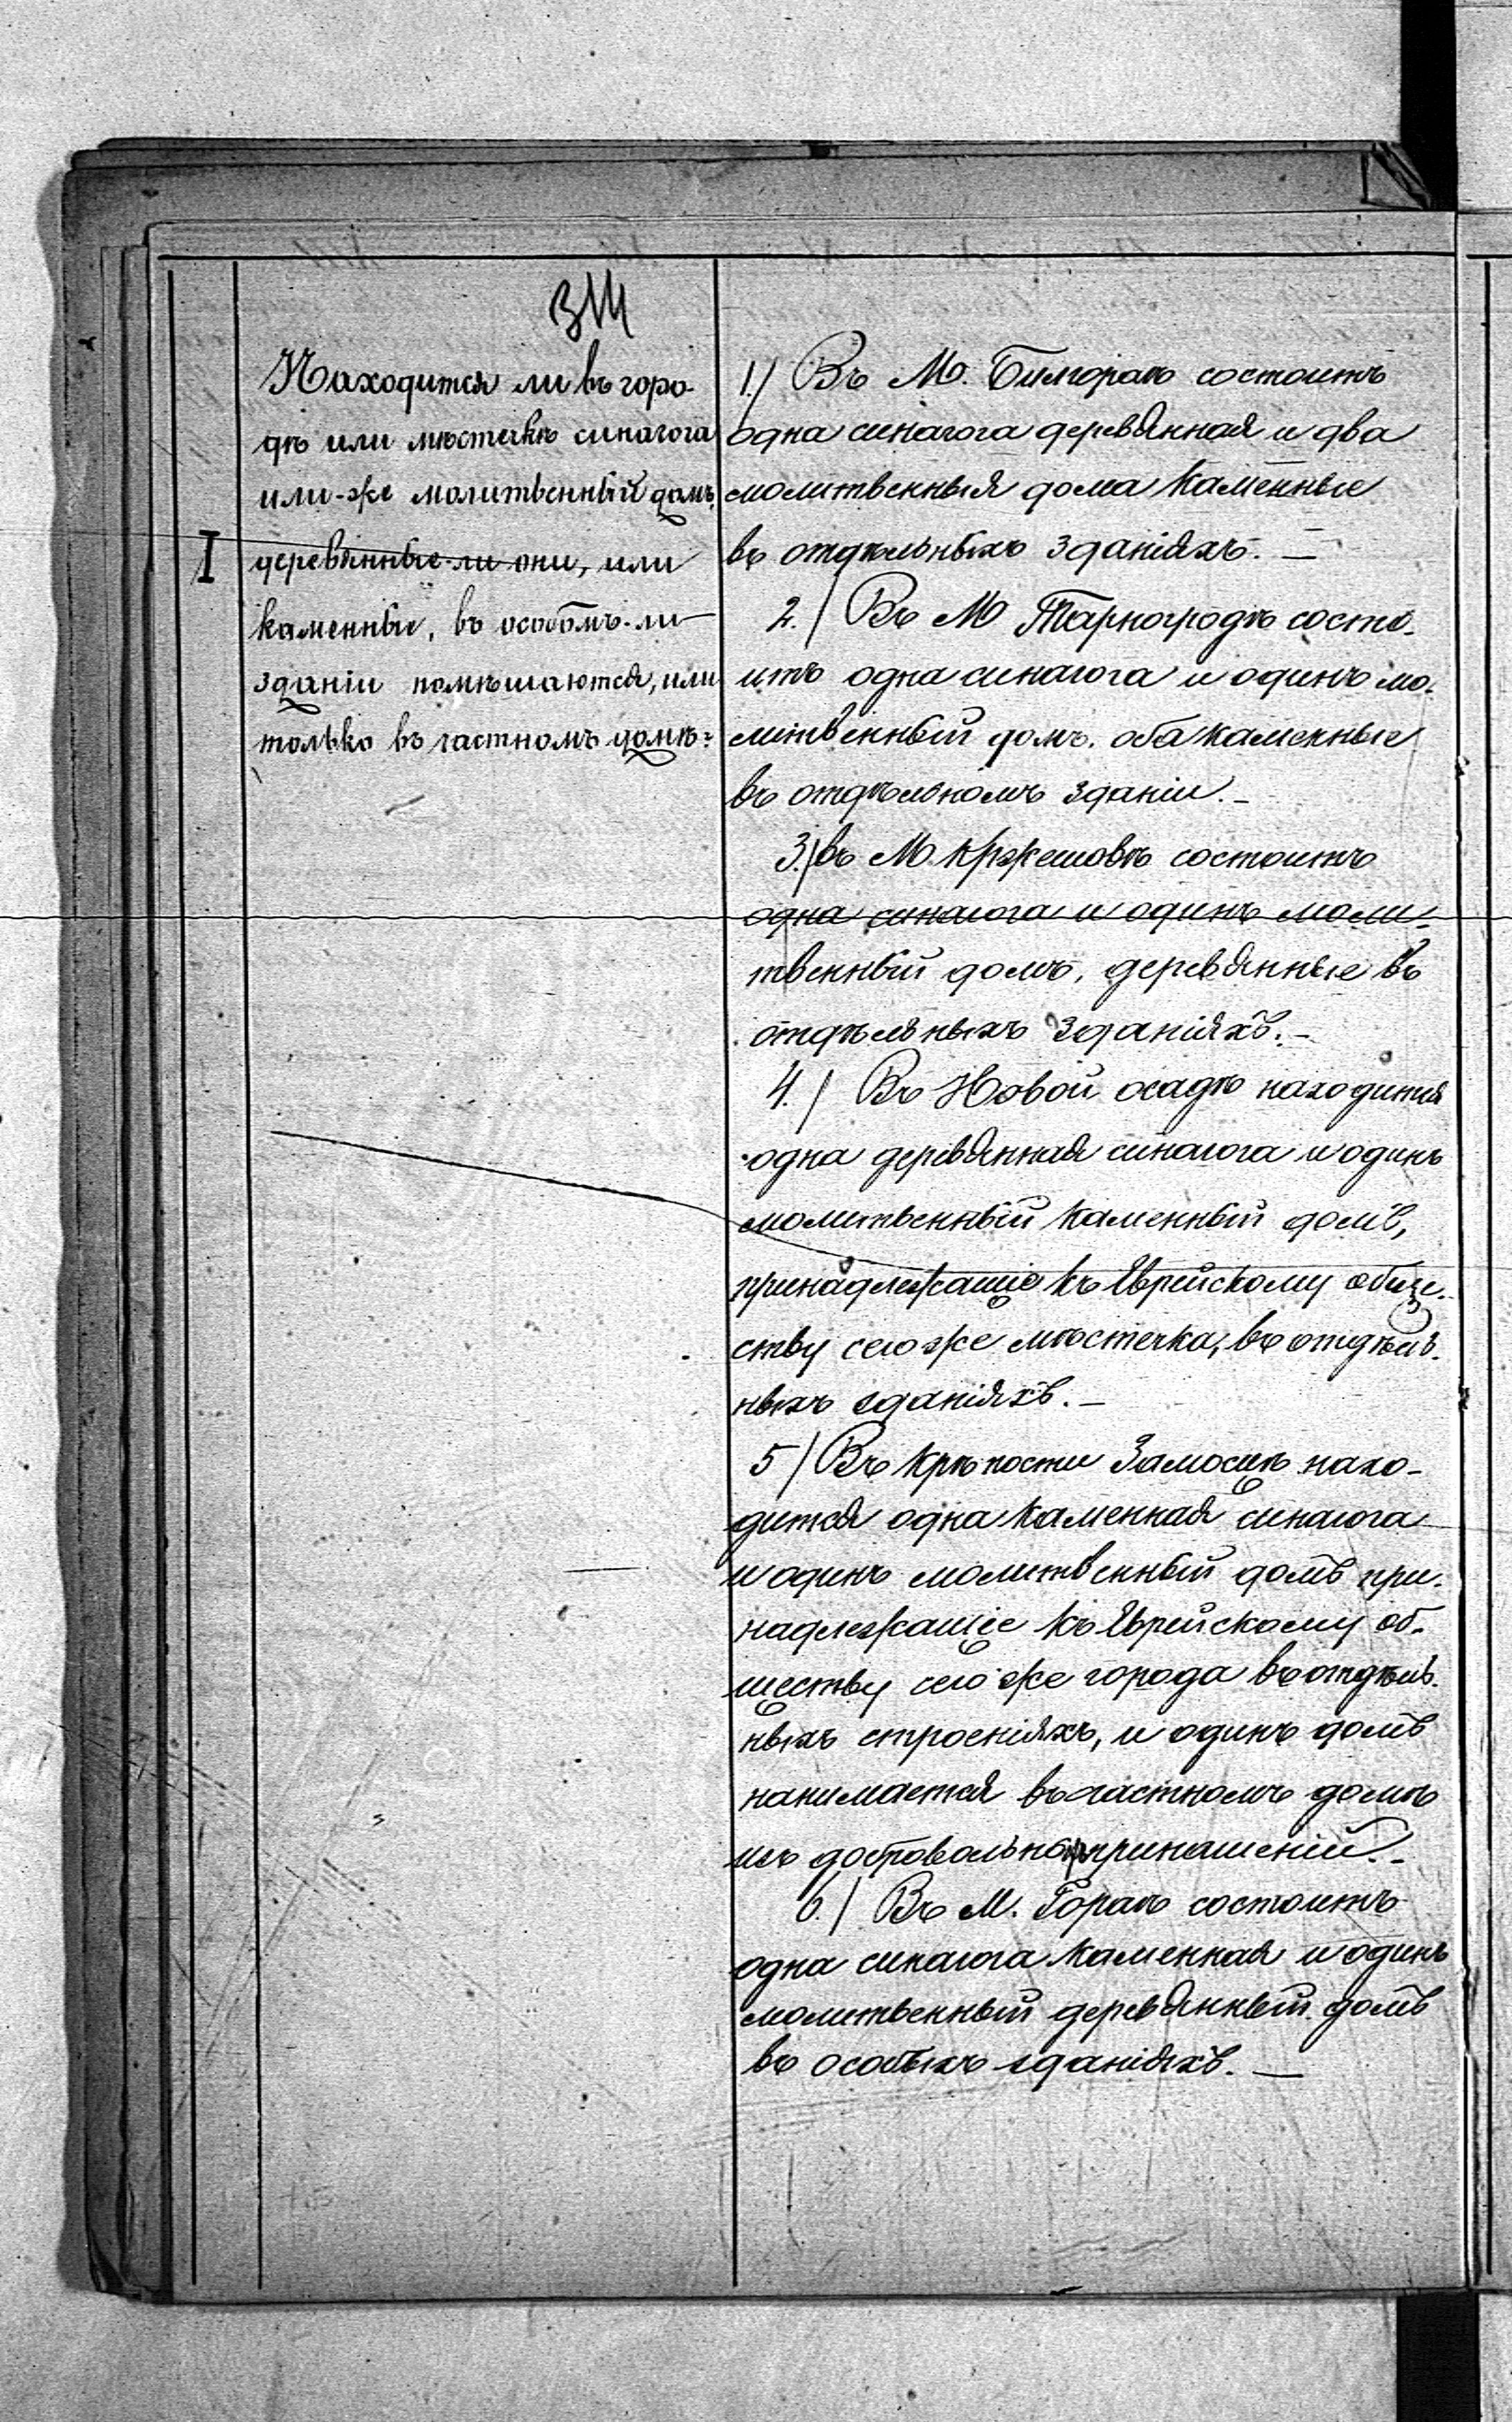 I
Находится ли въ горо-
дѣ или мѣстечкѣ синагога
или-же молитвенный домъ,
деревянные-ли они, или
каменные, въ особомъ-ли
зданіи помѣщаются, или
только въ частномъ домѣ:
1./ Въ М. Билгораѣ состоитъ
одна синагога деревянная и два
молитвенныя дома каменные
въ отдѣльныхъ зданіяхъ. —
2./ Въ М Тарногродѣ состо-
итъ одна синагога и одинъ мо-
литвенный домъ. оба каменные
въ отдѣльномъ зданіи. –
3./ въ М. Кржешовѣ состоитъ
одна синагога и одинъ моли-
твенный домъ, деревянные въ
отдѣльныхъ зданіяхъ. –
4./ Въ Новой осадѣ находится
одна деревянная синагога и одинъ
молитвенный каменный домъ,
принадлежащіе къ Еврейскому обще-
ству сего же мѣстечка, въ отдѣль-
ныхъ зданіяхъ. –
5/ Въ крѣпости Замосцѣ нахо-
дится одна каменная синагога
и одинъ молитвенный домъ при-
надлежащіе къ Еврейскому об-
ществу сего же города въ отдѣль-
ныхъ строеніяхъ, и одинъ домъ
нанимается въ частномъ домѣ
изъ приношеній. –
6./ Въ М. Гораѣ состоитъ
одна синагога каменная и одинъ
молитвенный деревянный домъ
въ особыхъ зданіяхъ. —